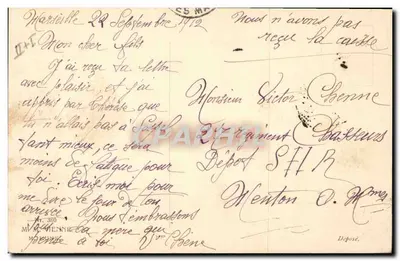 Marseille 22 Septembre 1912
Mon cher fils
J'ai reçu ta lettre
avec plaisir et j'ai
appris par Thérèse que
tu n'allais pas à
tant mieux ce sera
moins de fatigue pour
toi. Ecris moi pour
me dire le jour de ton
arrivée. Nous t'embrassons
ta mère qui
pense à toi Vve Chêne
Nous n'avons pas
reçu la caisse
Monsieur Victor Chenne
2 régiment Chasseurs
Dépôt SHR
Menton A. Mmes
Déposé.